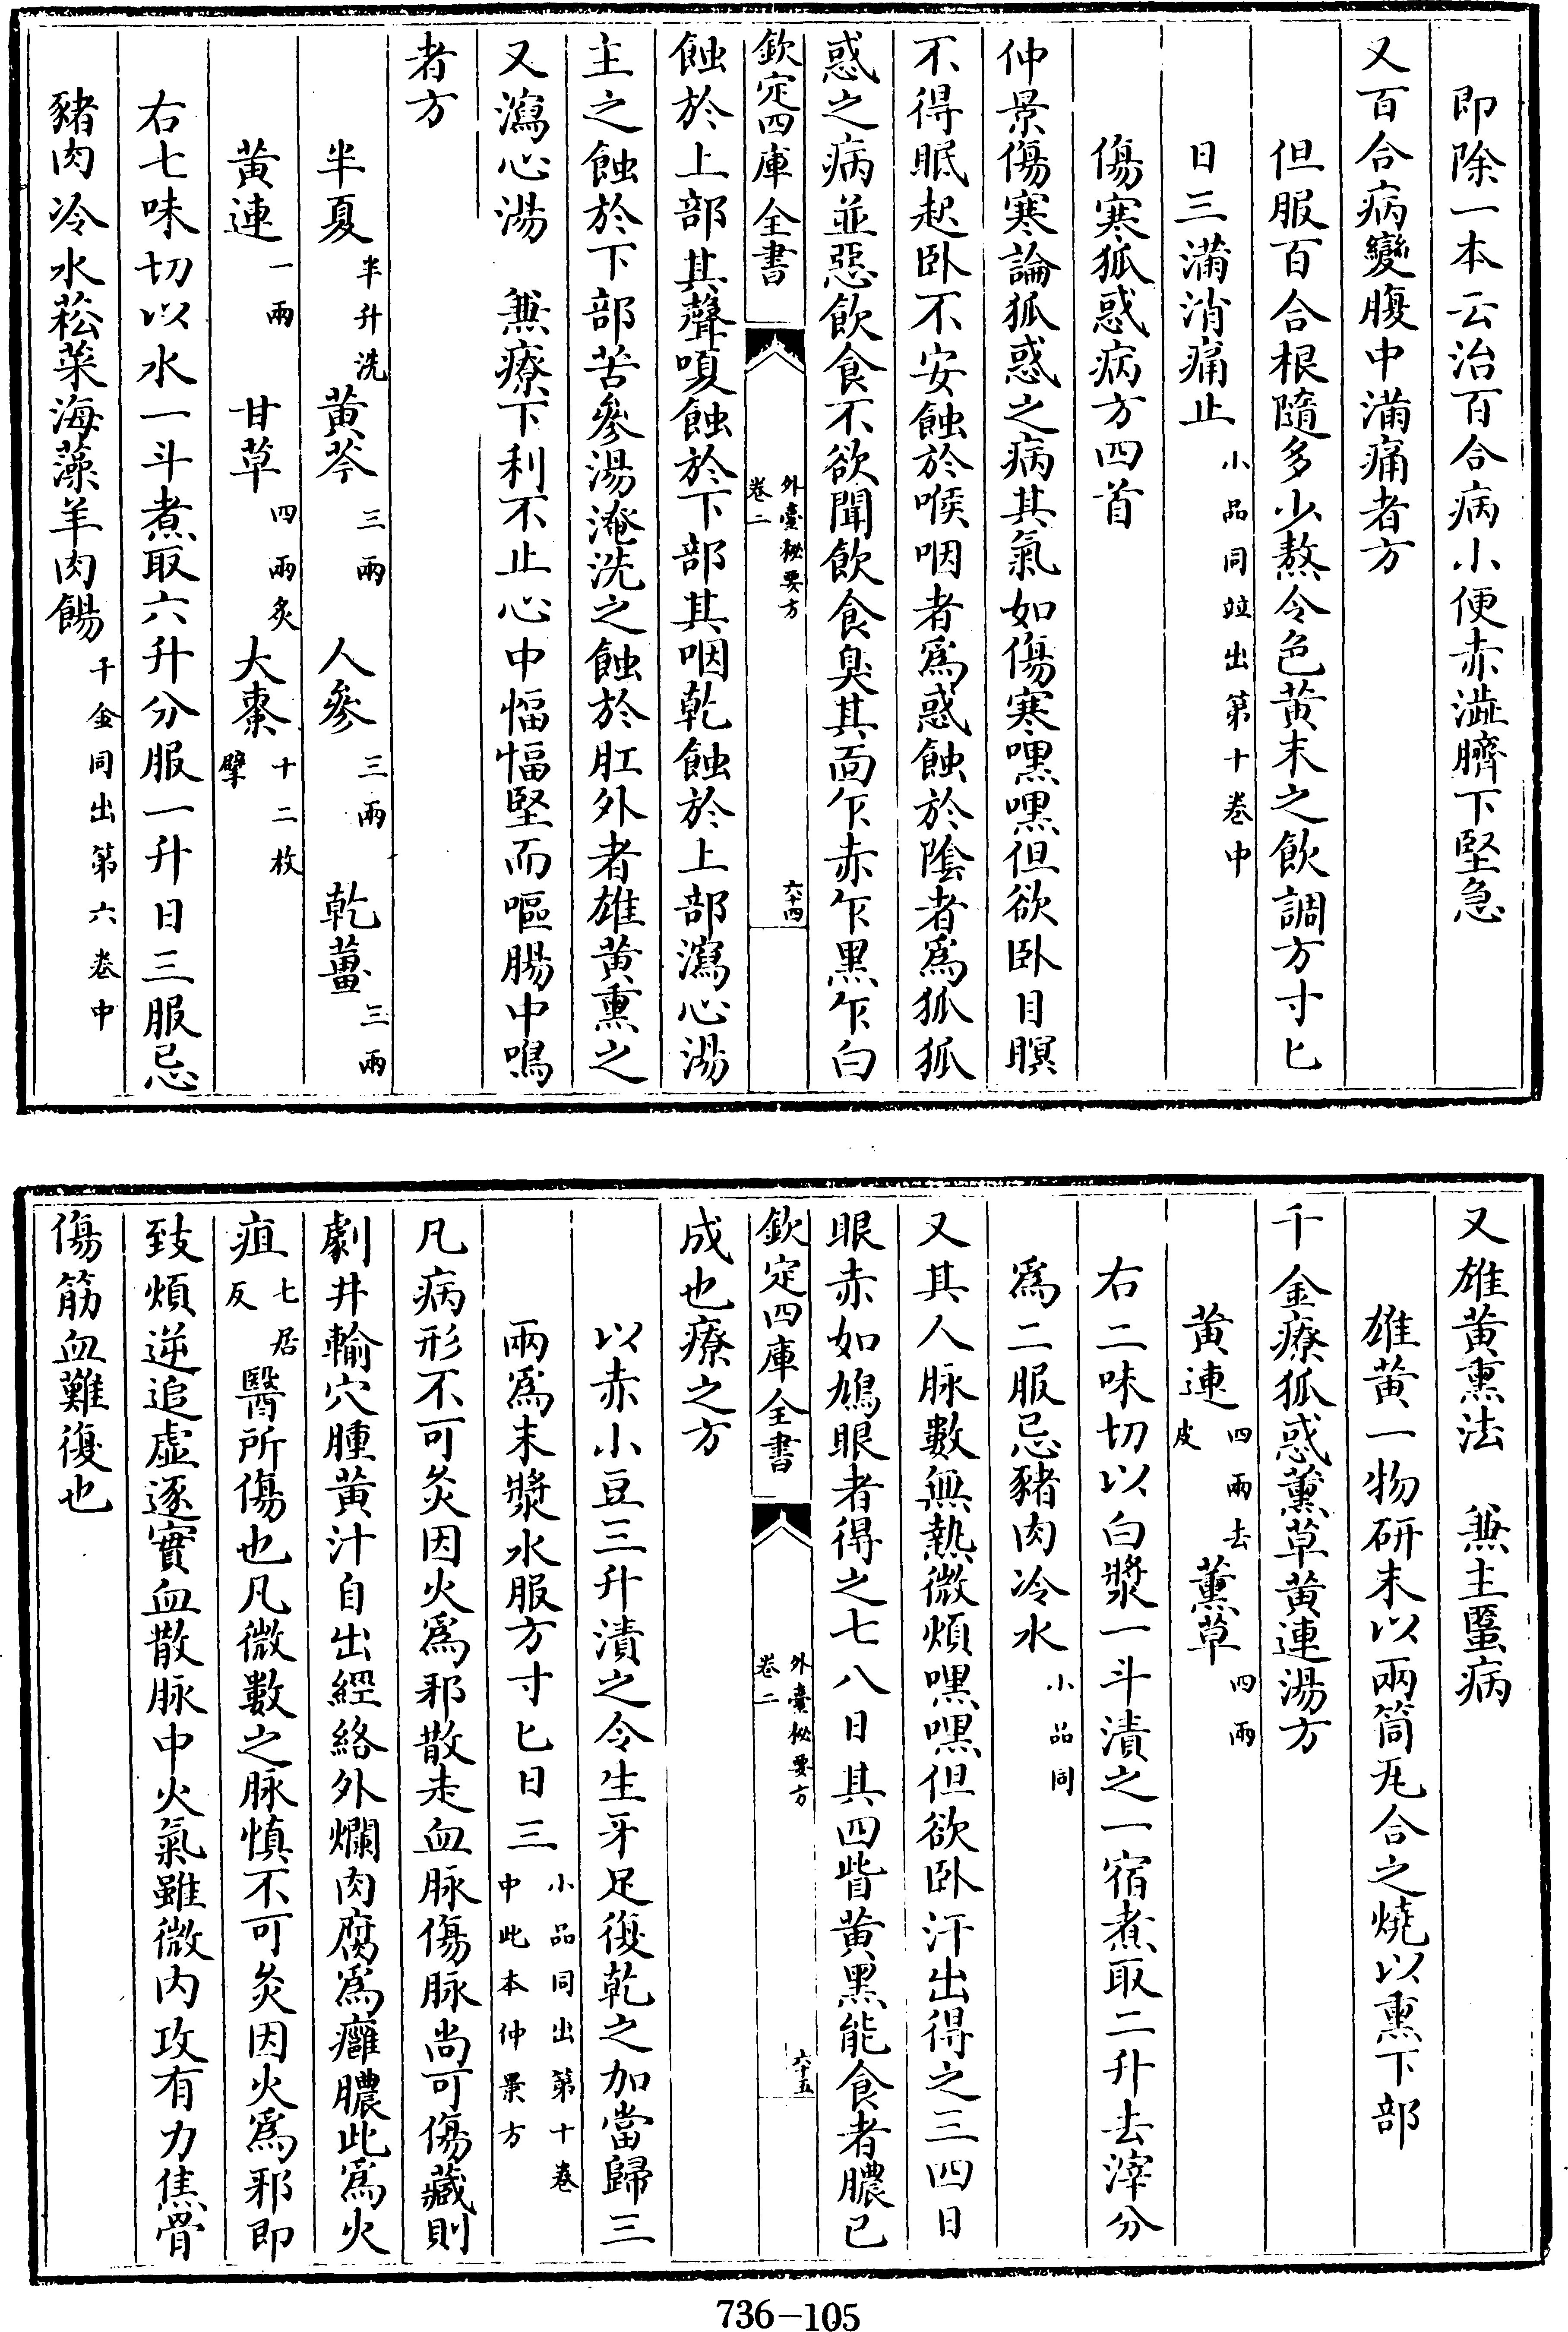 即除一本云治百合病小便赤澁臍下堅急
又百合病變腹中滿痛者方
但服百合根隨多少熬令色黄末之飲調方寸匕
日三滿消痛止小品同竝出第十卷中
傷寒狐惑病方四首
仲景傷寒論狐惑之病其氣如傷寒嘿嘿但欲卧目瞑
不得眠起卧不安蝕於喉咽者爲惑蝕於陰者爲狐狐
惑之病並惡飲食不欲聞飲食臭其面乍赤乍黒乍白
欽定四庫全書
外臺秘要方
卷二
六十四
蝕於上部其聲嗄蝕於下部其咽乾蝕於上部瀉心湯
主之蝕於下部苦參湯淹洗之蝕於肛外者雄黄熏之
又瀉心湯 兼療下利不止心中愊愊堅而嘔腸中鳴
者方
半夏半升洗 黄芩三兩 人參三兩 乾薑三兩
黄連一兩 甘草四兩炙 大棗十二枚擘
右七味切以水一斗煮取六升分服一升日三服忌
豬肉冷水菘菜海藻羊肉餳千金同出第六卷中
又雄黄熏法 兼主䘌病
雄黄一物研末以兩筒瓦合之燒以熏下部
千金療狐惑薰草黄連湯方
黄連四兩去皮 薰草四兩
右二味切以白漿一斗漬之一宿煮取二升去滓分
爲二服忌豬肉冷水小品同
又其人脉數無熱微煩嘿嘿但欲卧汗出得之三四日
眼赤如鳩眼者得之七八日其四眥黄黒能食者膿已
欽定四庫全書
外臺秘要方
卷二
六十五
成也療之方
以赤小豆三升漬之令生牙足復乾之加當歸三
兩爲末漿水服方寸匕日三小品同出第十卷中此本仲景方
凡病形不可灸因火爲邪散走血脉傷脉尚可傷藏則
劇井輸穴腫黄汁自出經絡外爛肉腐爲癰膿此爲火
疽七居反醫所傷也凡微數之脉慎不可灸因火爲邪即
致煩逆追虚逐實血散脉中火氣雖微内攻有力焦骨
傷筋血難復也
736—105